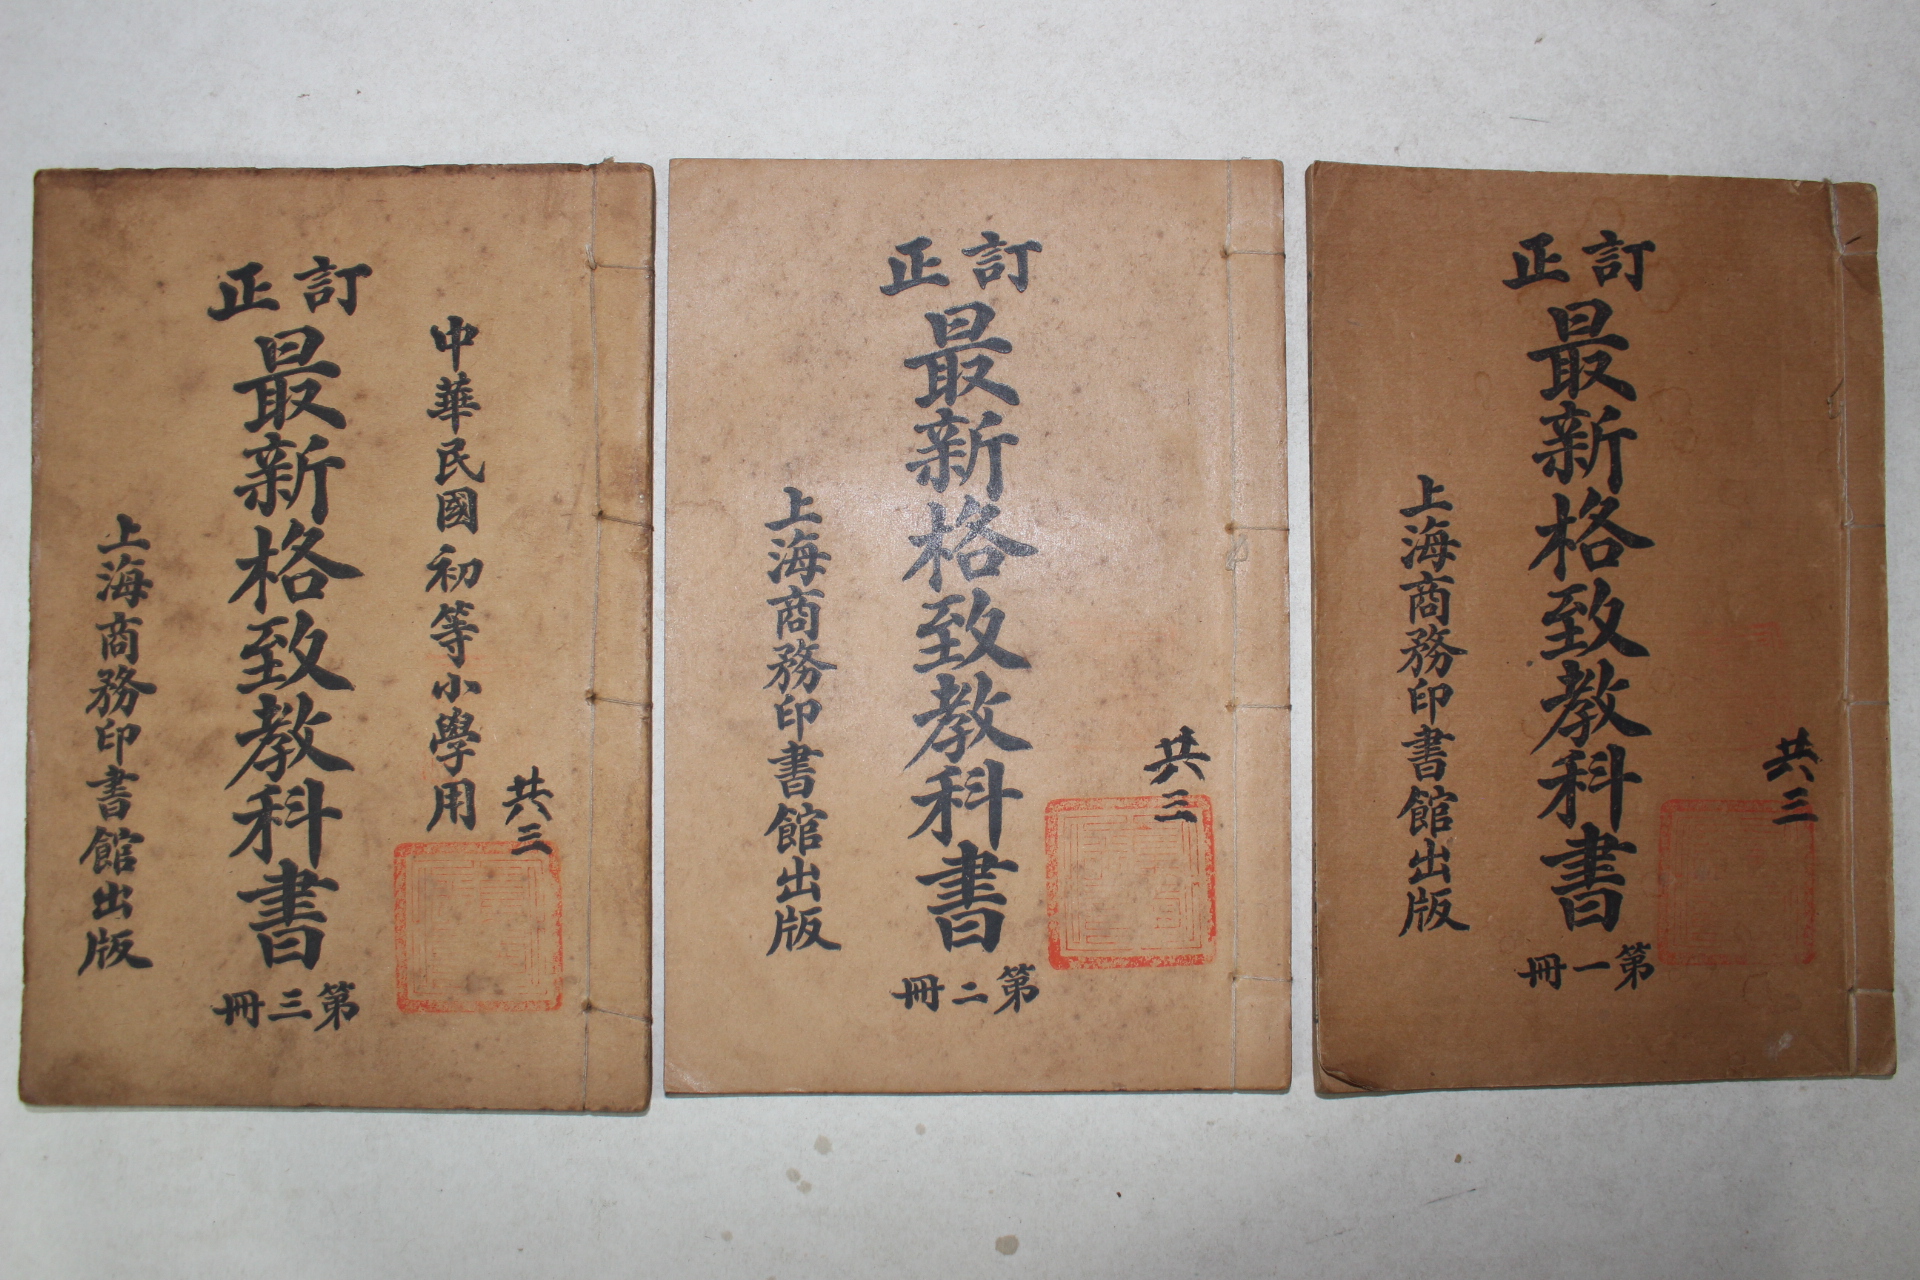 共三
訂正
最新格致教科書
第一冊
上海商務印書館出版
共三
訂正
最新格致教科書
第二冊
上海商務印書館出版
共三
中華民國初等小學用
訂正
最新格致教科書
第三冊
上海商務印書館出版